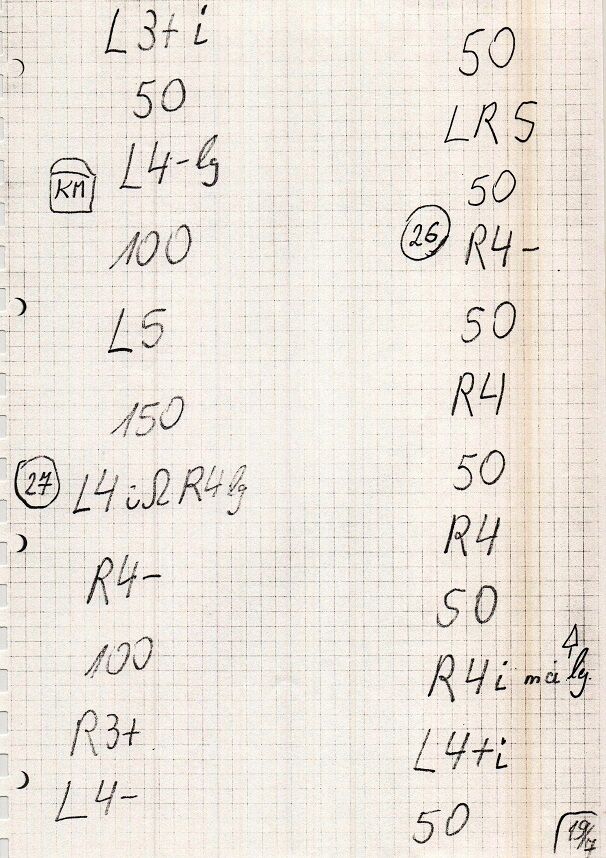 L3+i
50
KM
L4-lg
100
L5
150
27
L4iΩR4lg
R4-
100
R3+
L4-
50
LR5
50
26
R4-
50
R4
50
R4
50
R4i mai lg.
L4+i
50
19/7